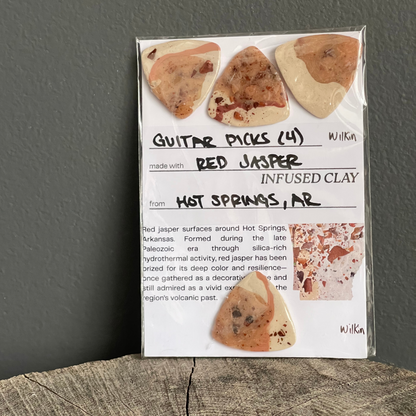 GUITAR PICKS (4) Wilkin
made with RED JASPER
INFUSED CLAY
from HOT SPRINGS, AR
Red jasper surfaces around Hot Springs,
Arkansas. Formed during the late
Paleozoic era through silica-rich
hydrothermal activity, red jasper has been
prized for its deep color and resilience—
once gathered as a decorative and
still admired as a vivid of the
region's volcanic past.
Wilkin